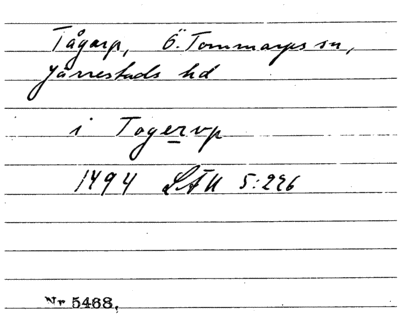 Tågarp, Ö. Tommarps sn,
Järrestads hd
i Togervp
1494 LÄU 5:226
Nr 5468.